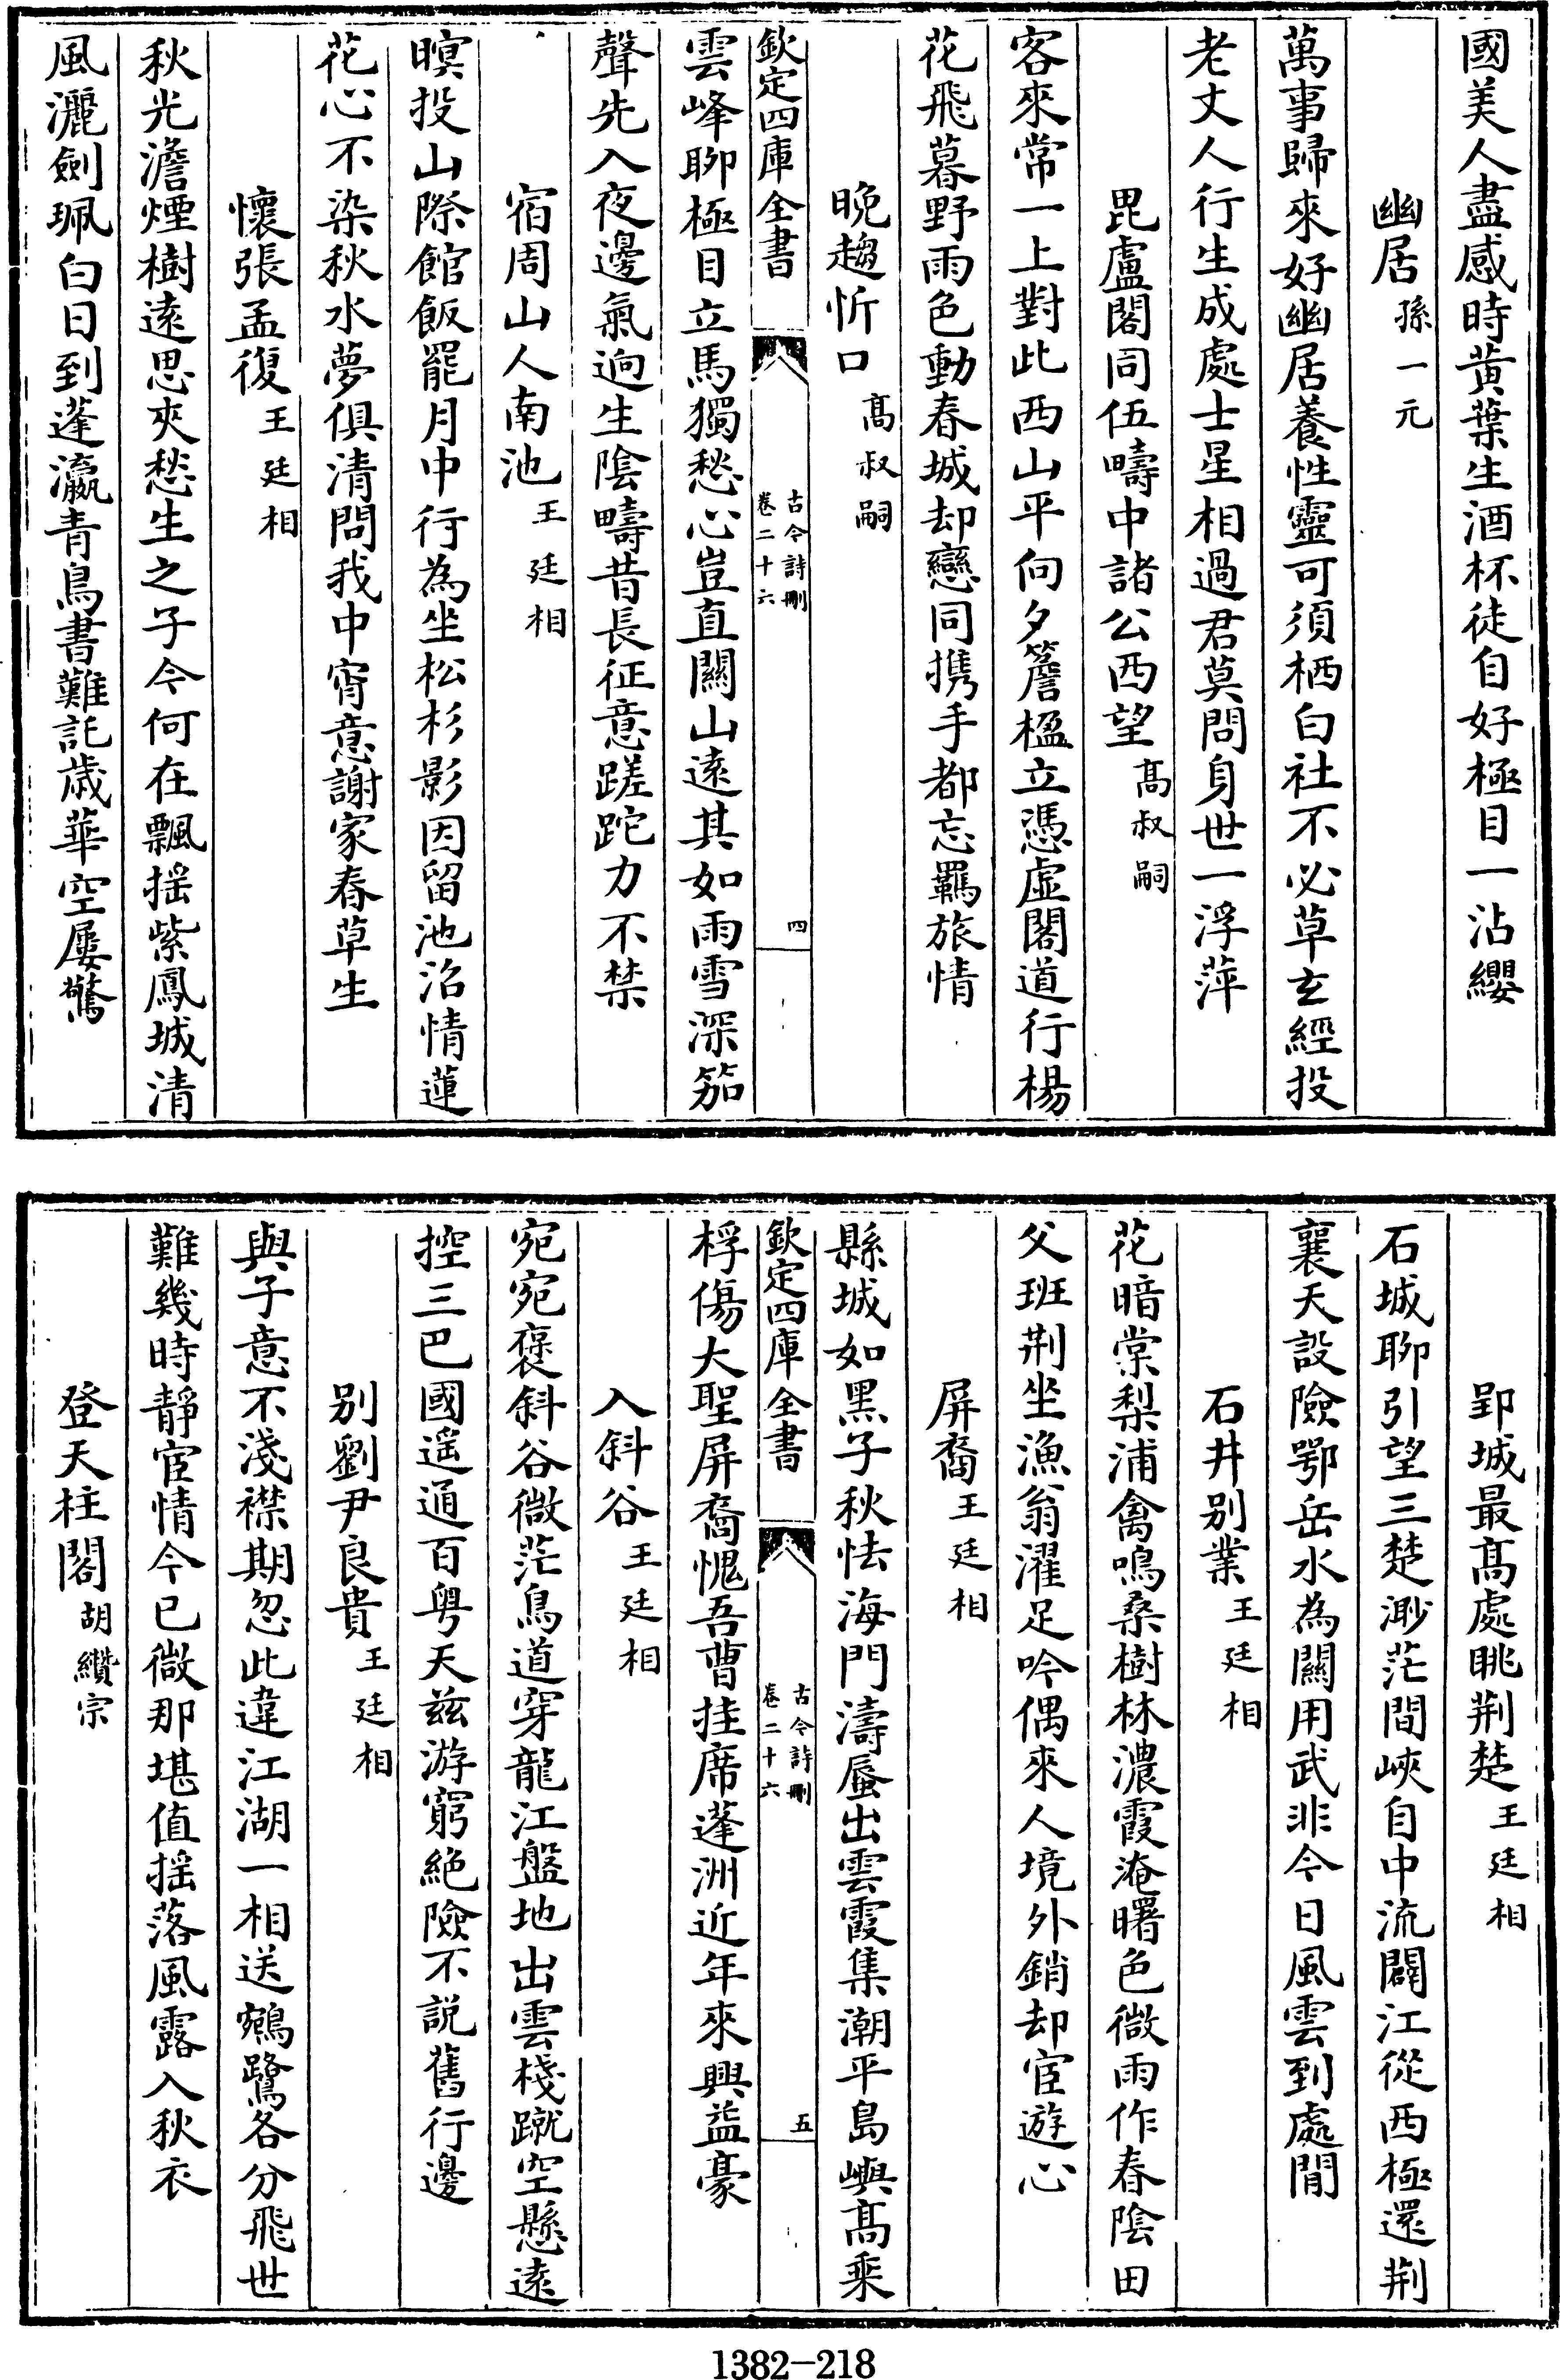 國美人盡感時黃葉生酒杯徒自好極目一沾纓
幽居孫一元
萬事歸來好幽居養性靈可須栖白社不必草玄經投
老丈人行生成處士星相過君莫問身世一浮萍
毘盧閣同伍疇中諸公西望髙叔嗣
客來常一上對此西山平向夕簷楹立憑虛閣道行楊
花飛暮野雨色動春城却戀同携手都忘羈旅情
晚趨忻口髙叔嗣
欽定四庫全書
古今詩刪
卷二十六
四
雲峰聊極目立馬獨愁心豈直關山逺其如雨雪深笳
聲先入夜邊氣逈生陰疇昔長征意蹉跎力不禁
宿周山人南池王廷相
暝投山際館飯罷月中行為坐松杉影因留池沼情蓮
花心不染秋水夢俱清問我中宵意謝家春草生
懷張孟復王廷相
秋光澹煙樹逺思夾愁生之子今何在飄揺紫鳳城清
風灑劍珮白日到蓬瀛青鳥書難託歳華空屢驚
郢城最髙處眺荆楚王廷相
石城聊引望三楚渺茫間峽自中流闢江從西極還荆
襄天設險鄂岳水為關用武非今日風雲到處閒
石井别業王廷相
花暗棠梨浦禽鳴桑樹林濃霞淹曙色微雨作春陰田
父班荆坐漁翁濯足吟偶來人境外銷却宦遊心
屏裔王廷相
縣城如黑子秋怯海門濤蜃出雲霞集潮平島嶼髙乘
欽定四庫全書
古今詩刪
卷二十六
五
桴傷大聖屏裔愧吾曹挂席蓬洲近年來興益豪
入斜谷王廷相
宛宛褒斜谷微茫鳥道穿龍江盤地出雲棧蹴空懸逺
控三巴國遥通百粤天兹游窮絶險不説舊行邊
别劉尹良貴王廷相
與子意不淺襟期忽此違江湖一相送鵷鷺各分飛世
難幾時靜宦情今已微那堪值揺落風露入秋衣
登天柱閣胡纘宗
1382-218